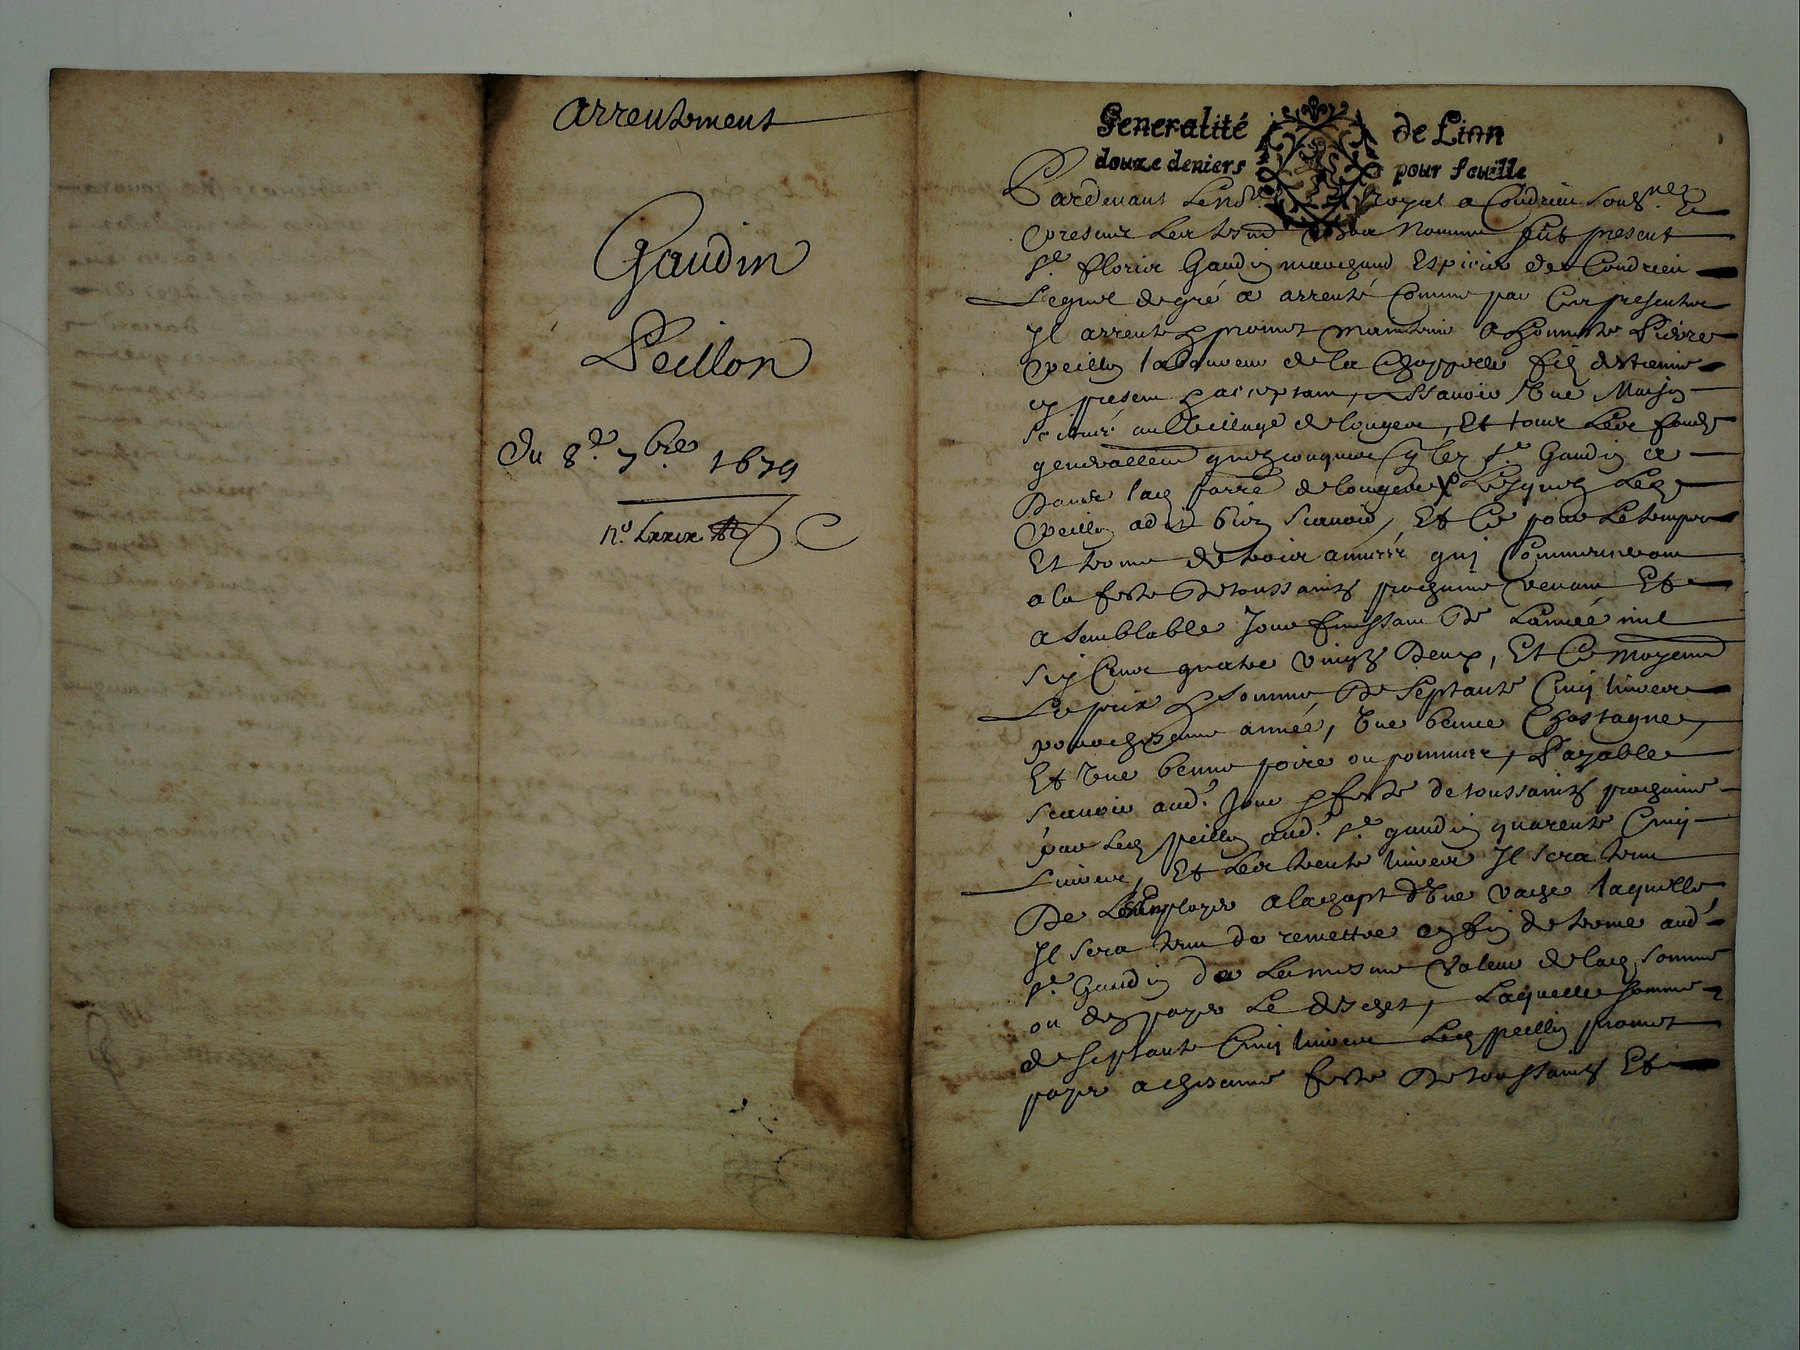 Arrentement
Gaudin
Peillon
Du 8.e 7bre 1679
n.o Lxxix
Generalité de Lion
douze deniers pour feuille
Pardevant Le royal a Condrieu soubs.né Et
present Les nommé fut present
s.r florir Gaudin marchand Espicier de Condrieu
Lequel de gré a arrenté Comme par Ces presentes
Il arrente promet maintenir a honneste Pierre
peillon laboureur de la Chappelle fils d'Estienne
cy present acceptant, assavoir Une Maison
scitué au Village de Longeve, Et tous Les fonds
generallem quelconques q led s.r Gaudin a
Dans lad parre de Longeve Lesquels Led
peillon a dit bien scavoir, Et Ce pour Le temps
Et terme de trois années qui Commenceront
a la feste De toussaints prochaine venant Et
a semblable Jour finissant De L'année mil
six Cent quatre vingts Deux, Et Ce moyennt
Le prix somme De septante Cinq livres
pour chascune année, Une benne Chastagnes,
Et Une benne poire ou pommes, Payable
scavoir aud. Jour feste de toussaints prochaine
par Led peillon aud. s.r gaudin quarente Cinq
Livres, Et Les trente livres Il sera tenu
De L'employer a lachapt d'Une vache laquelle
Il sera tenu de remettre en fin de terme aud.
s.r Gaudin de La mesme Valeur de lad somme
ou de payer Le deschet, Laquelle somme
de septante Cinq livres Led peillon promet
payer a chascune feste De toussaints Et